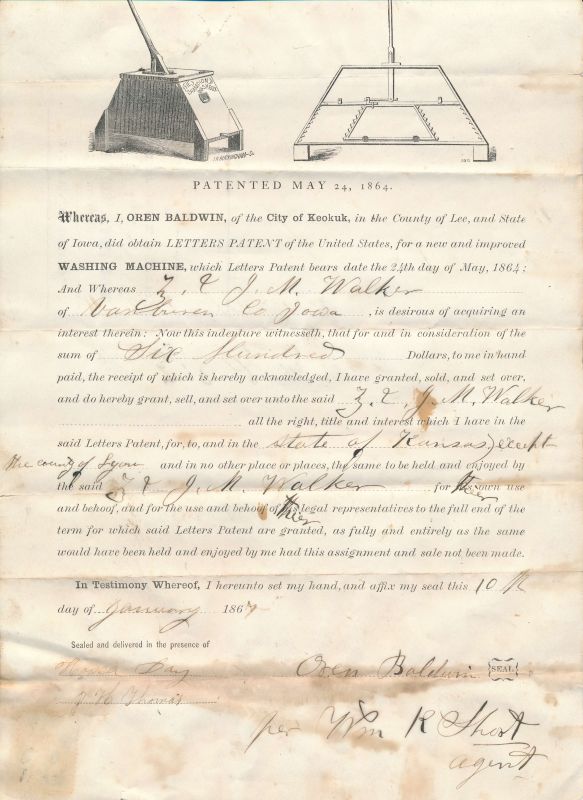 PATENTED MAY 24, 1864.
Whereas, I, OREN BALDWIN, of the City of Keokuk, in the County of Lee, and State
of Iowa, did obtain LETTERS PATENT of the United States, for a new and improved
WASHING MACHINE, which Letters Patent bears date the 24th day of May, 1864;
And Whereas Z & J. M. Walker
of Vanburen Co. Iowa, is desirous of acquiring an
interest therein: Now this indenture witnesseth, that for and in consideration of the
sum of Six Hundred Dollars, to me in hand
paid, the receipt of which is hereby acknowledged, I have granted, sold, and set over,
and do hereby grant, sell, and set over unto the said Z. & J. M. Walker
all the right, title and interest which I have in the
said Letters Patent, for, to, and in the state of Kansas, except
the county of Lyon and in no other place or places, the same to be held and enjoyed by
the said Z & J. M. Walker for their own use
and behoof, and for the use and behoof of their legal representatives to the full end of the
term for which said Letters Patent are granted, as fully and entirely as the same
would have been held and enjoyed by me had this assignment and sale not been made.
In Testimony Whereof, I hereunto set my hand, and affix my seal this 10th
day of January 1867
Sealed and delivered in the presence of
Day
Oren Baldwin SEAL
Thomas
per Wm R Short
agent